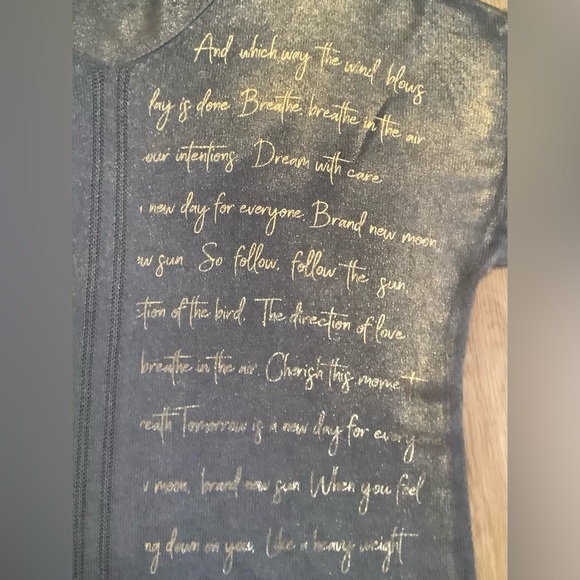 And which way the wind blows
day is done Breathe, breathe in the air
our intentions Dream with care
new day for everyone. Brand new moon,
ew sun So follow, follow the sun,
ction of the bird. The direction of love
breathe in the air. Cherish this mome t
reath Tomorrow is a new day for every
moon, brand new sun When you feel
ng down on you, Like a heavy weight